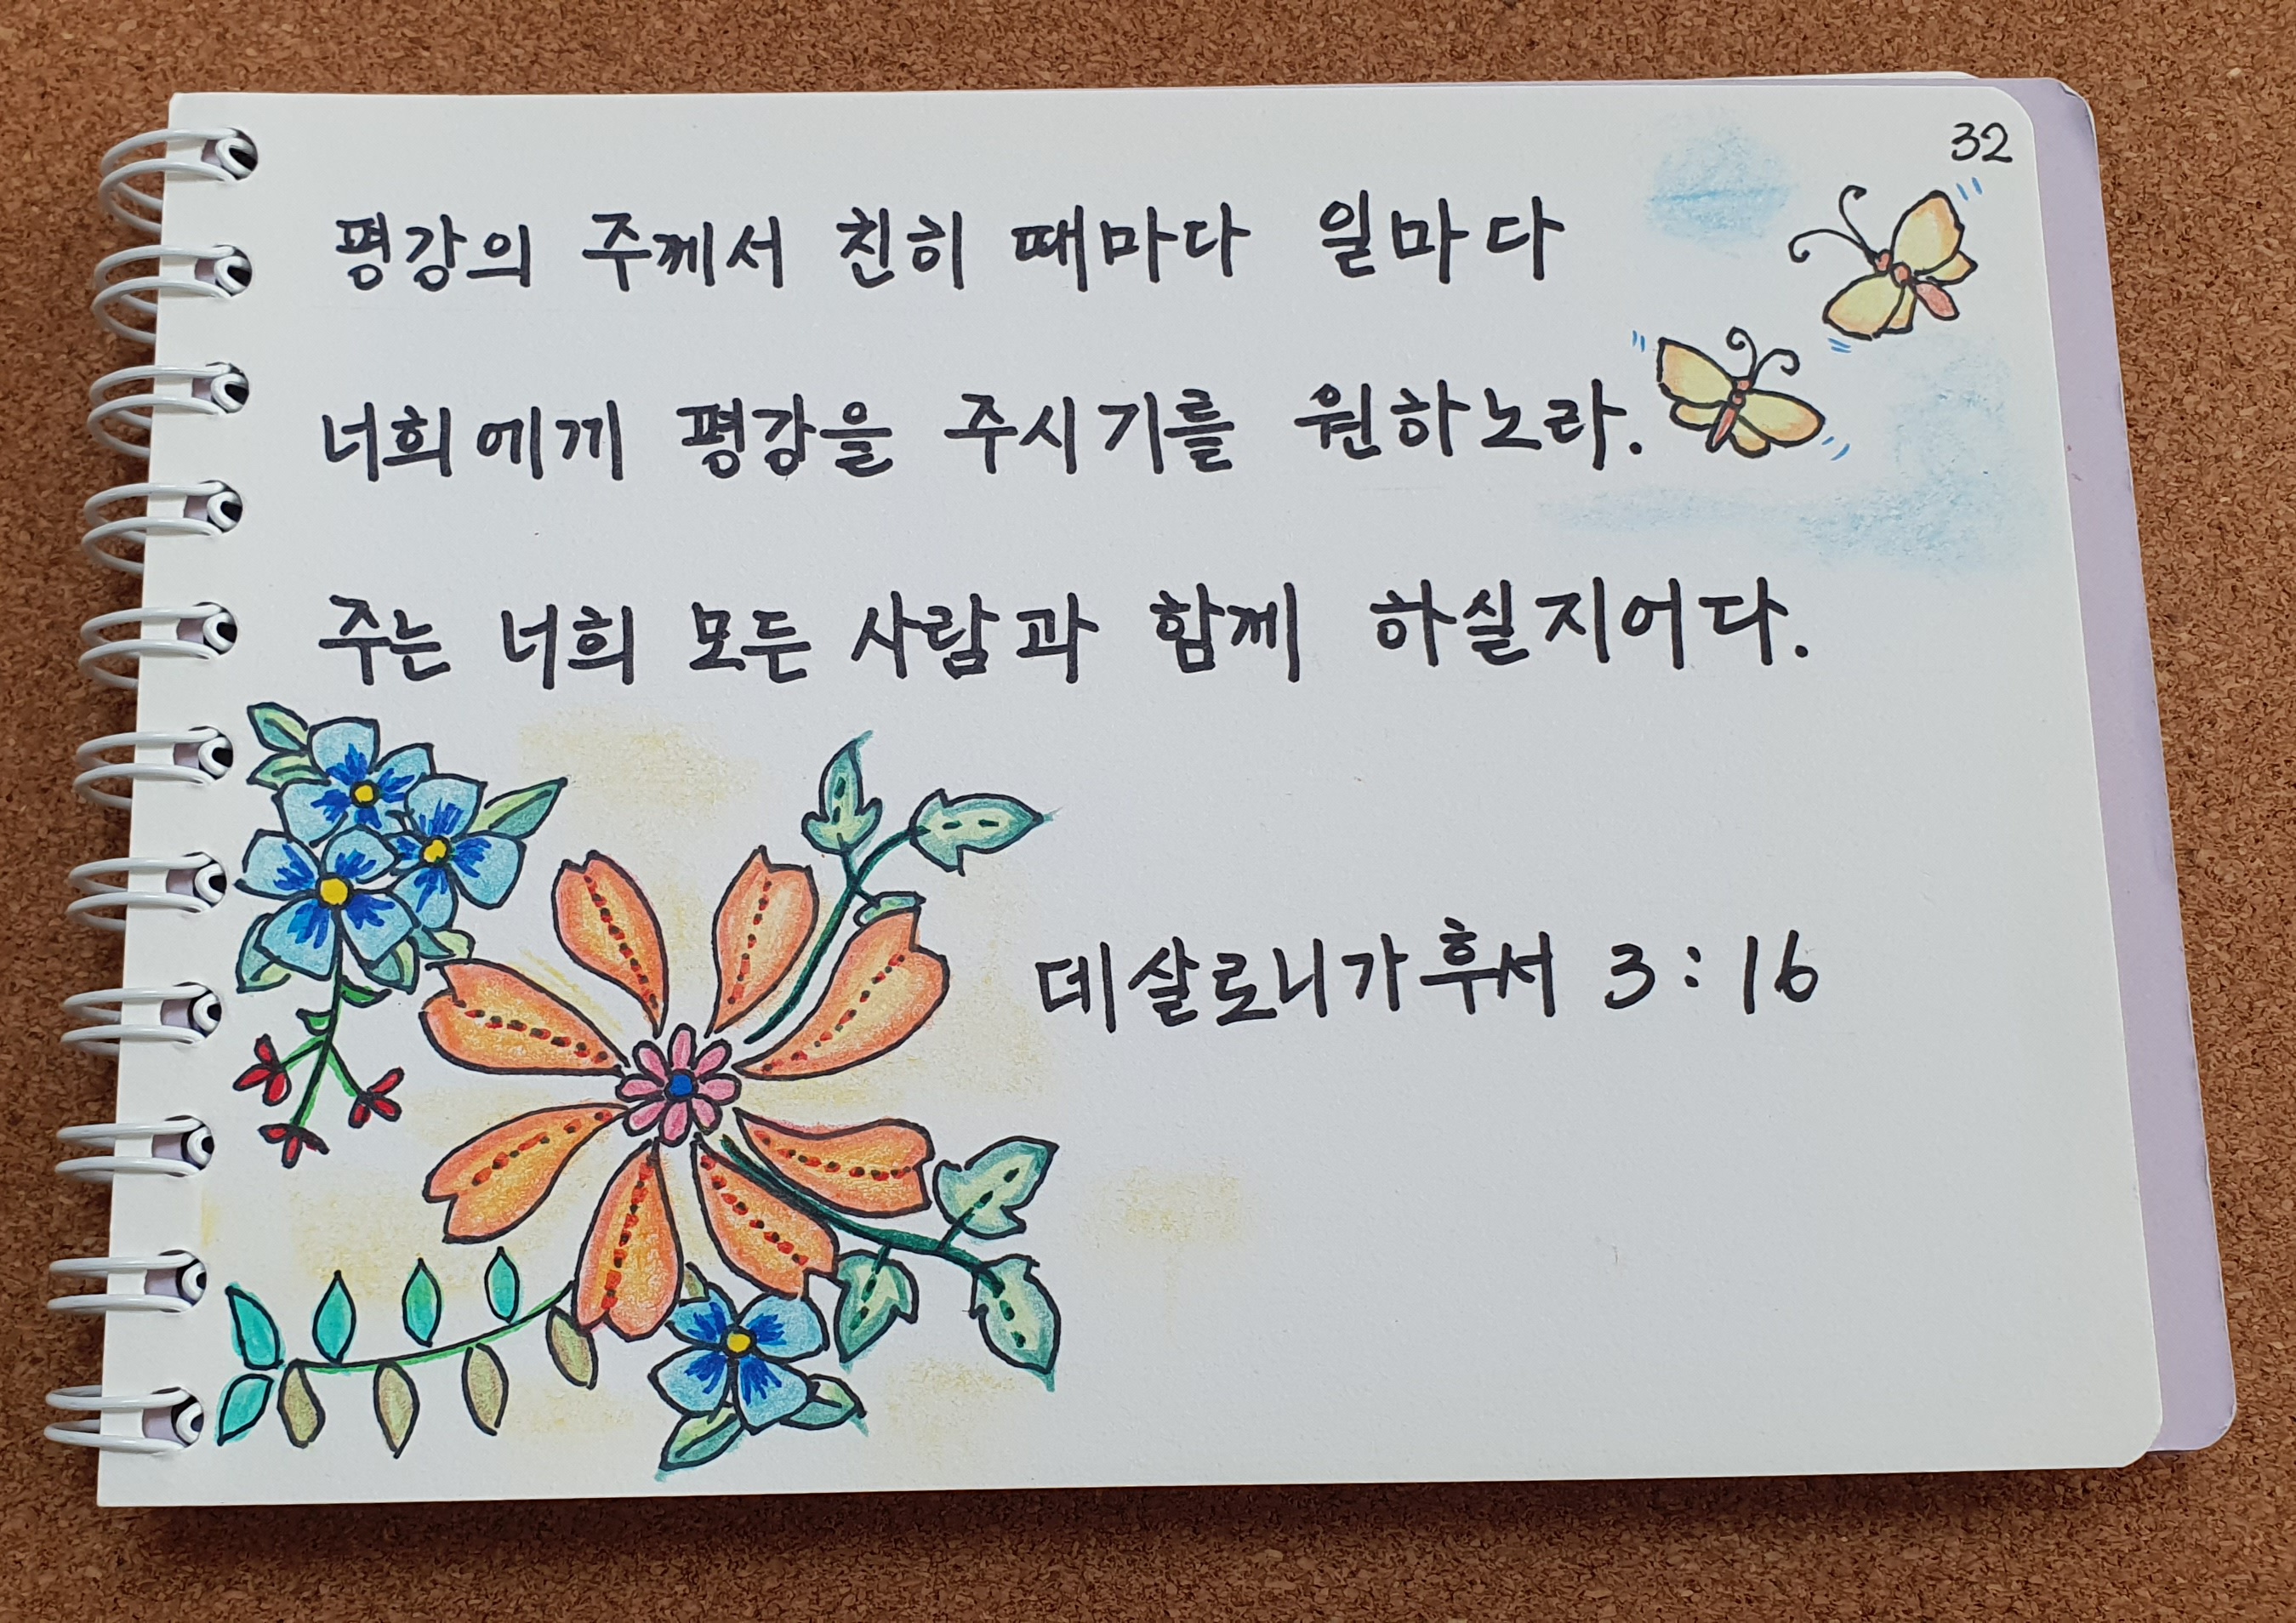 32
평강의 주께서 친히 때마다 일마다
너희에게 평강을 주시기를 원하노라.
주는 너희 모든 사람과 함께 하실지어다.
데살로니가후서 3:16